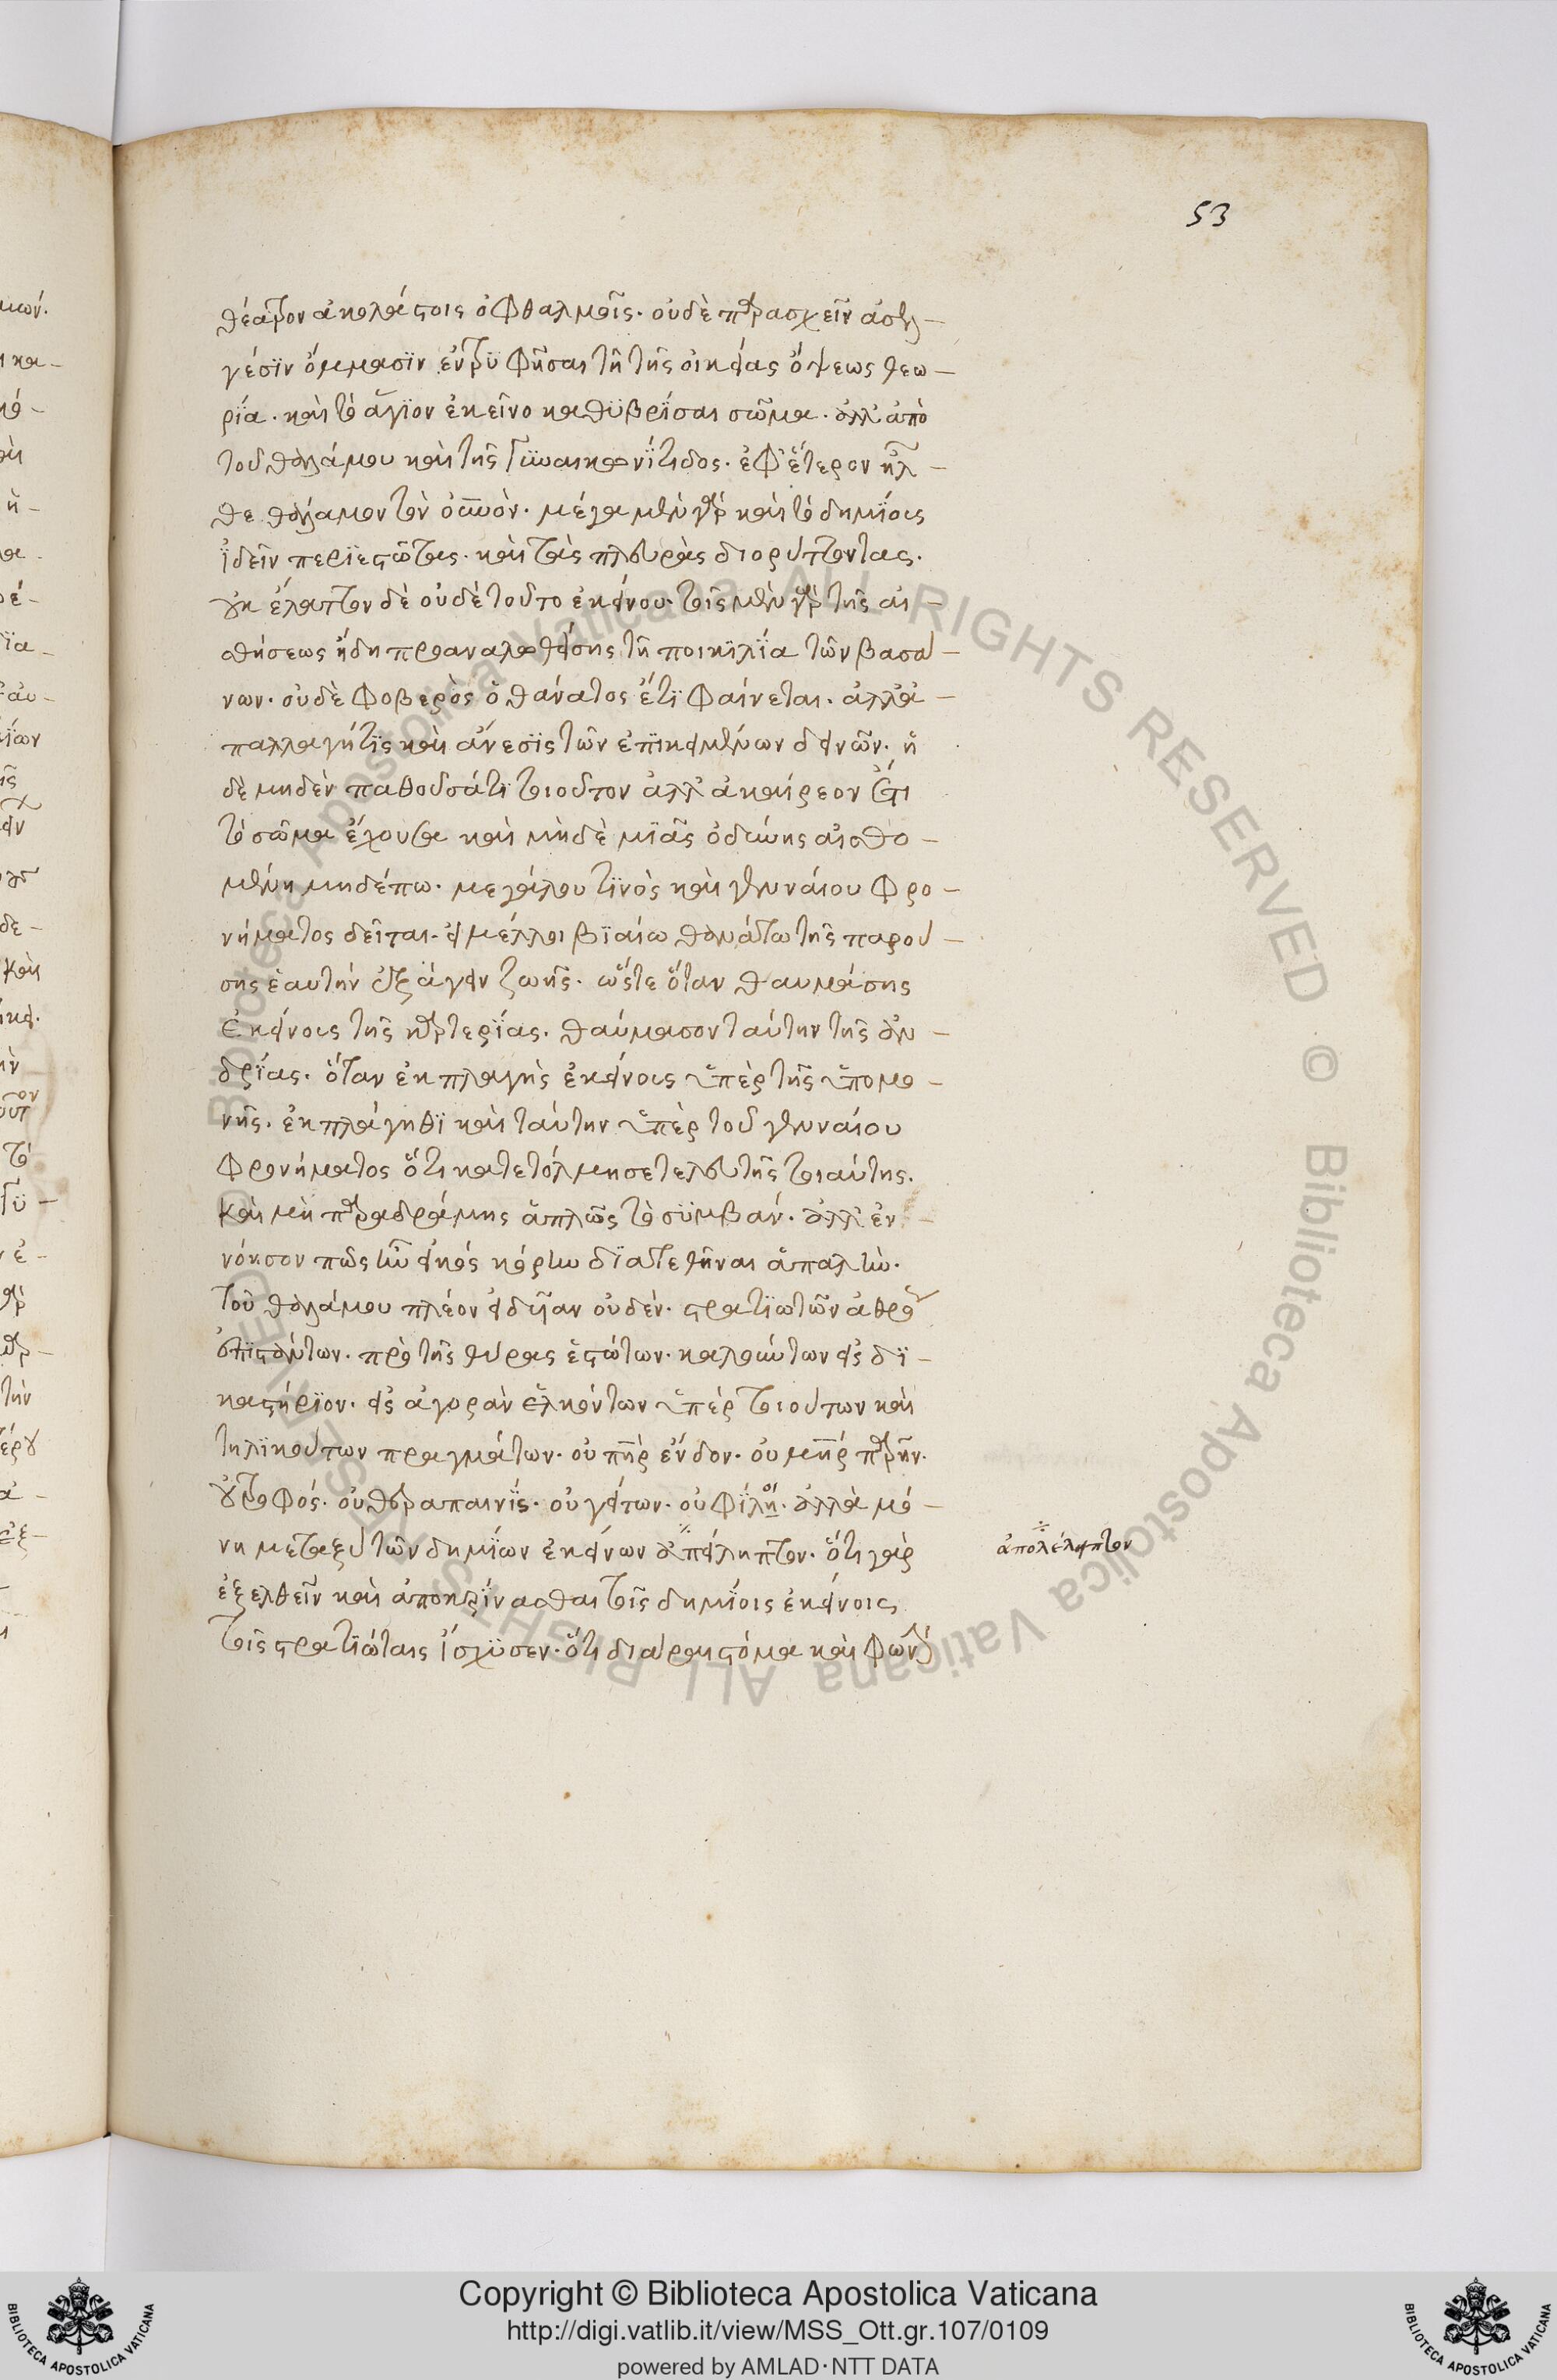 53
θέατρον ἀκολάστοις ὀφθαλμοῖς· οὐδὲ παρασχεῖν ἀσελ-
γέσϊν ὄμμασϊν ἐντρϋφῆσαι τῆ τῆς οἰκείας ὄψεως θεω-
ρΐα· καὶ τὸ ἅγϊον ἐκεῖνο καθϋβρΐσαι σῶμα· ἀλλ' ἀπὸ
τοῦ θαλάμου καὶ τῆς γϋναικωνΐτιδος· ἐφ' ἕτερον ἦλ-
θε θάλαμον τὸν οὐνὸν· μέγα μὲν γὰρ καὶ τὸ δημΐους
ἰδεῖν περϊεστῶτας· καὶ τὰς πλευρὰς διορύττοντας·
οὐκ ἔλαττον δὲ οὐδὲ τοῦτο ἐκείνου· τοῖς μὲν γὰρ τῆς αἰ-
σθήσεως ἤδη προαναλωθείσης τῆ ποικιλΐα τῶν βασά-
νων· οὐδὲ φοβερὸς ὁ θάνατος ἔτϊ φαίνεται· ἀλλ' ἀ-
παλλαγή τϊς καὶ ἄνεσϊς τῶν ἐπϊκειμένων δεινῶν· ἡ
δὲ μηδὲν παθοῦσά τι τοιοῦτον ἀλλ' ἀκαίρεον ἔτι
τὸ σῶμα ἔχουσα καὶ μὴδὲ μϊᾶς ὀδύνης αἰσθο-
μένη μηδέπω· μεγάλου τϊνὸς καὶ γενναίου φρο-
νήματος δεῖται· εἰ μέλλοι βϊαίω θανάτω τῆς παρού-
σης ἑαυτὴν ἐξάγειν ζωῆς· ὥστε ὅταν θαυμάσης
ἐκείνοις τῆς καρτερΐας· θαύμασον ταύτην τῆς ἀν-
δρΐας· ὅταν ἐκπλαγῆς ἐκείνοις ὑπὲρ τῆς ὑπομο-
νῆς· ἐκπλάγηθϊ καὶ ταύτην ὑπὲρ τοῦ γενναίου
φρονήματος ὅτι κατετόλμησε τελευτῆς τοιαύτης·
καὶ μὴ παραδράμης ἁπλῶς τὸ σϋμβάν· ἀλλ' ἐν-
νόησον πῶς ἦν εἰκὸς κόρην δϊατεθῆναι ἁπαλὴν·
τοῦ θαλάμου πλέον εἰδυῖαν οὐδέν· στρατϊωτῶν ἀθρόον
ἐπϊστάντων· πρὸ τῆς θύρας ἑστώτων· καλούντων εἰς δϊ-
καστήρϊον· εἰς ἀγορὰν ἑλκόντων ὑπὲρ τοιούτων καὶ
τηλϊκούτων πραγμάτων· οὐ πῆρ ἔνδον· οὐ μῆρ παρῆν·
οὐ τροφός· οὐ θεραπαινΐς· οὐ γείτων· οὐ φΐλη· ἀλλὰ μό-
νη μεταξὺ τῶν δημΐων ἐκείνων ἀπείληπτον· ὅτι γὰρ
ἀπολέλειπτον
ἐξελθεῖν καὶ ἀποκρΐνασθαι τοῖς δημΐοις ἐκείνοις
τοῖς στρατϊώταις ἴσχϋσεν· ὅτι διᾶραι στόμα καὶ φωνὴν
Copyright © Biblioteca Apostolica Vaticana
http://digi.vatlib.it/view/MSS_Ott.gr.107/0109
powered by AMLAD·NTT DATA